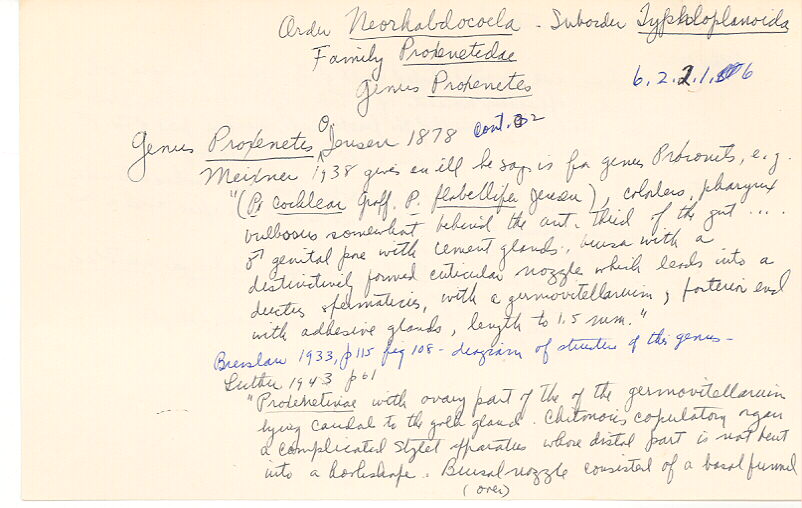 Order Neorhabdocoela - Suborder Typhloplanoida
Family Proxenetidae
Genus Proxenetes
6.2.2.1. 6
Genus Proxenetes O. Jensen 1878 cont. 2
Meixner 1938 gives an ill he says is for genus e.g.
"(P. cochlear Graff. P. flabellifer Jensen), colorless, pharynx
bulbosus somewhat behind the ant. third of the gut ....
♂ genital pore with cement glands, bursa with a
distinctively formed cuticular nozzle which leads into a
ductus spermaticus, with a germovitellarium, posterior end
with adhesive glands, length to 1.5 mm."
Bresslau 1933, p 115 fig 108 - diagram of structure of this genus -
Luther 1943 p 61
"Proxenetinae with ovary part of the of the germovitellarium
lying caudal to the yolk gland. Chitonous copulatory organ
a complicated stylet apparatus whose distal part is not bent
into a . Bursal nozzle consisted of a basal funnel
(over)